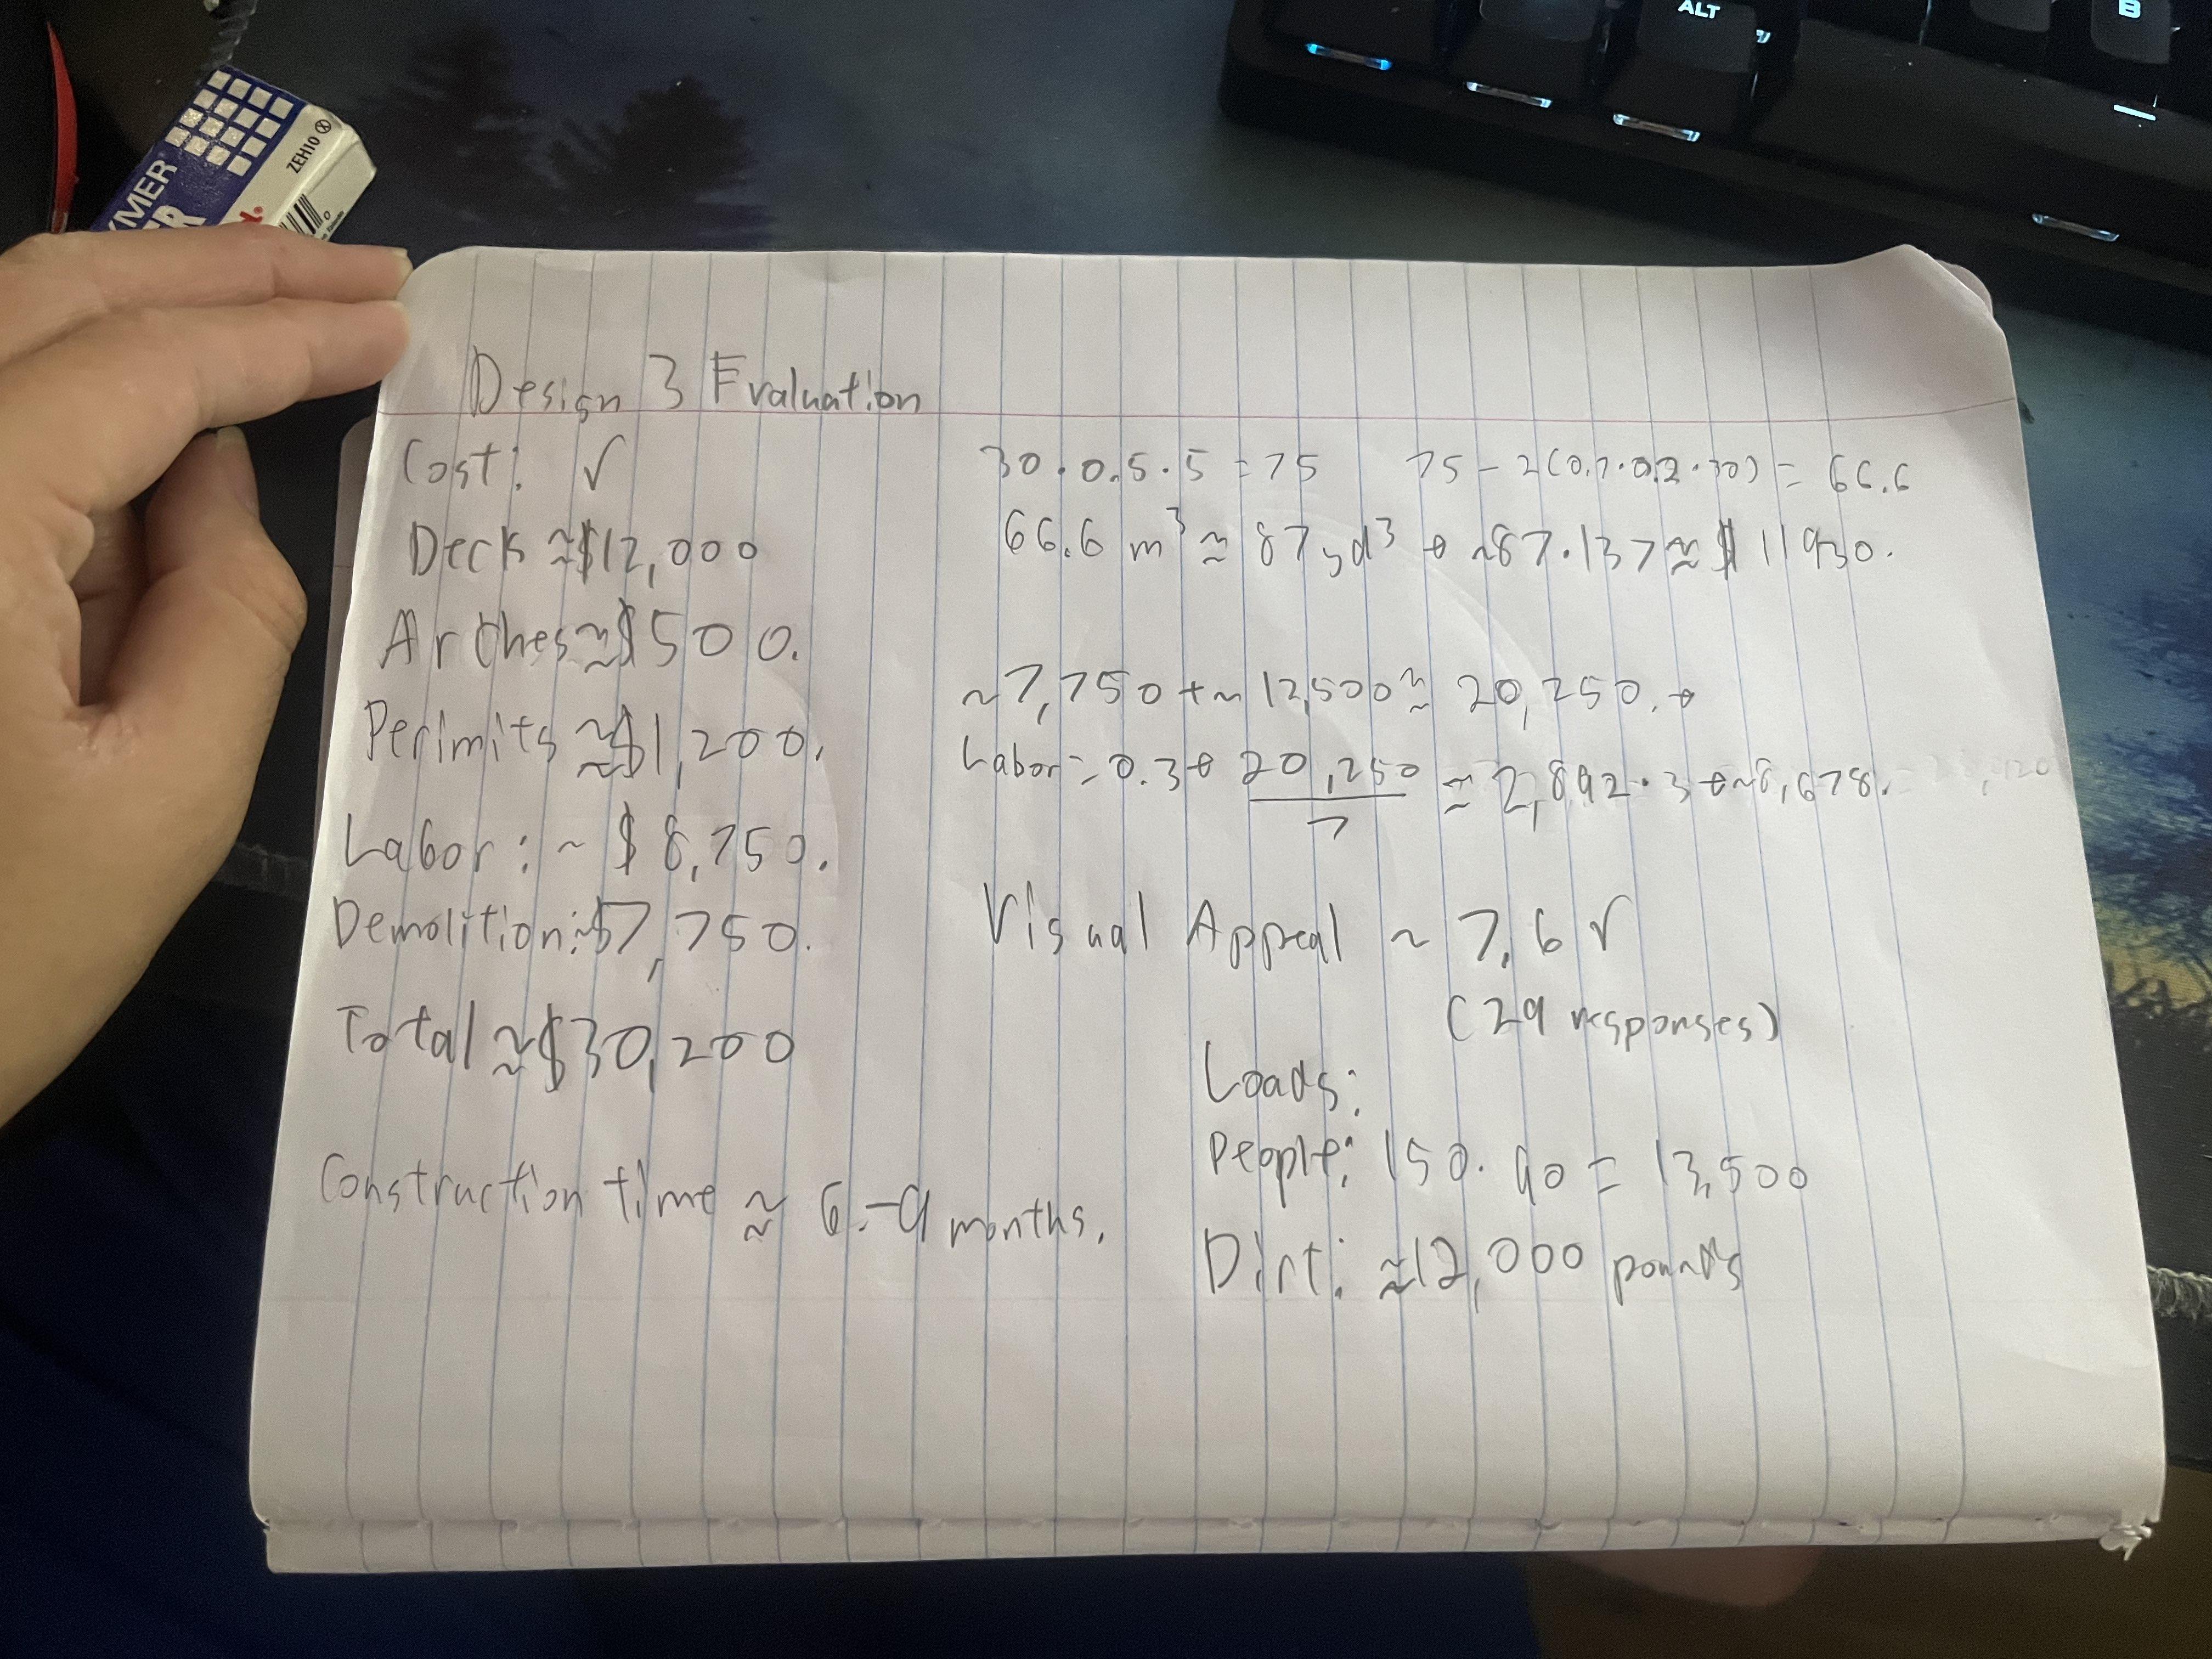 ALT
B
ZEH10
YMER
ER
Design 3 Evaluation
Cost: √
Deck ≈$12,000
Arches≈$500.
Perimits ≈$1,200.
Labor: ~ $8,750.
Demolition:~$7,750.
Total ≈$30,200
Construction time ≈ 6-9 months.
30·0.5·5=75 75-2(0.7·0.2·30)=66.6
66.6 m³ ≈ 87yd³ → ~87·137≈$11930.
~7,750+~12,500≈20,250.→
Labor=0.3→ 20,250/7 ≈ 2,892·3→~8,678.
Visual Appeal ~ 7.6 √
(29 responses)
Loads:
People: 150·90=13,500
Dirt: ≈12,000 pounds